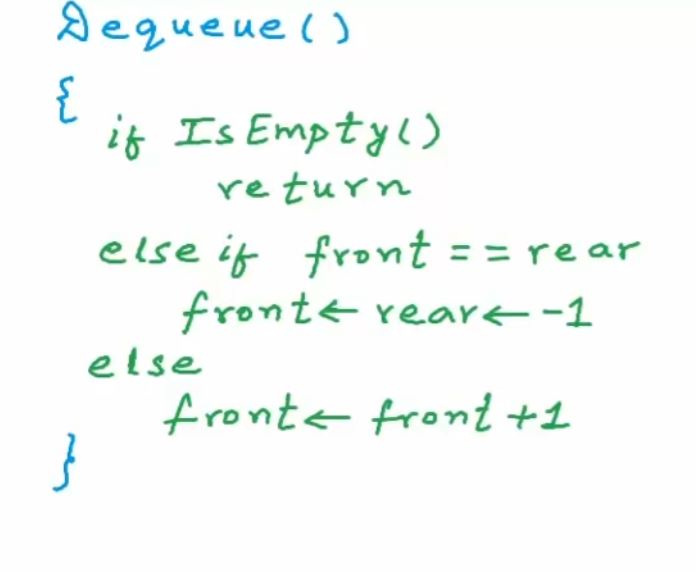 Dequeue()
{
if IsEmpty()
return
else if front == rear
front ← rear ← -1
else
front ← front +1
}